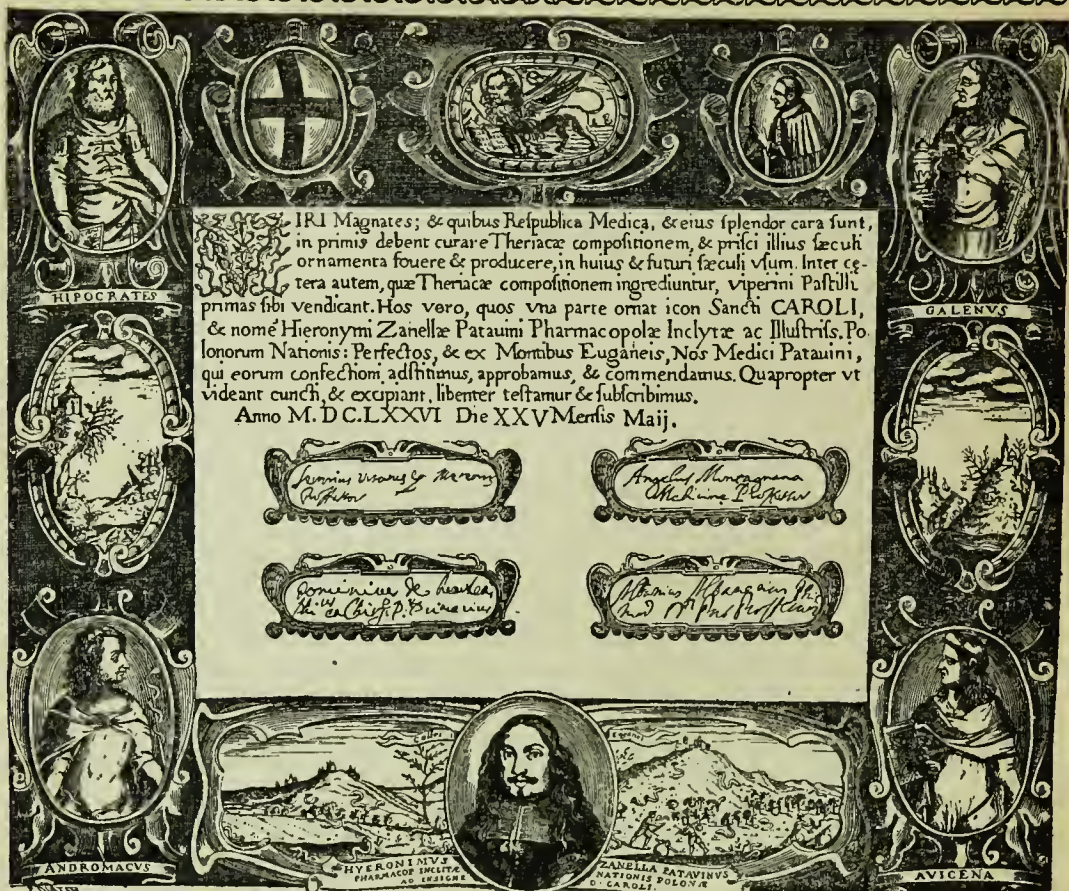 HIPOCRATES
GALENVS
VIRI Magnates; & quibus Respublica Medica, & eius splendor cara sunt,
in primis debent curare Theriacæ compositionem, & prisci illius sæculi
ornamenta fouere & producere, in huius & futuri sæculi vsum. Inter cę-
tera autem, quæ Theriacæ compositionem ingrediuntur, viperini Pastilli
primas sibi vendicant. Hos vero, quos vna parte ornat icon Sancti CAROLI,
& nomẽ Hieronymi Zanellæ Patauini Pharmacopolæ Inclytæ ac Illustriss. Po-
lonorum Nationis: Perfectos, & ex Montibus Euganeis, Nos Medici Patauini,
qui eorum confectioni adstitimus, approbamus, & commendamus. Quapropter vt
videant cuncti, & excipiant, libenter testamur & subscribimus.
Anno M. DC.LXXVI Die XXV Mensis Maij.
Angelus Montagnana
Medicinæ Professor
Colles
Euganei
ANDROMACVS
HYERONIMVS ZANELLA PATAVINVS
PHARMACOP INCLITÆ NATIONIS POLONÆ
AD INSIGNE D. CAROLI.
AVICENA